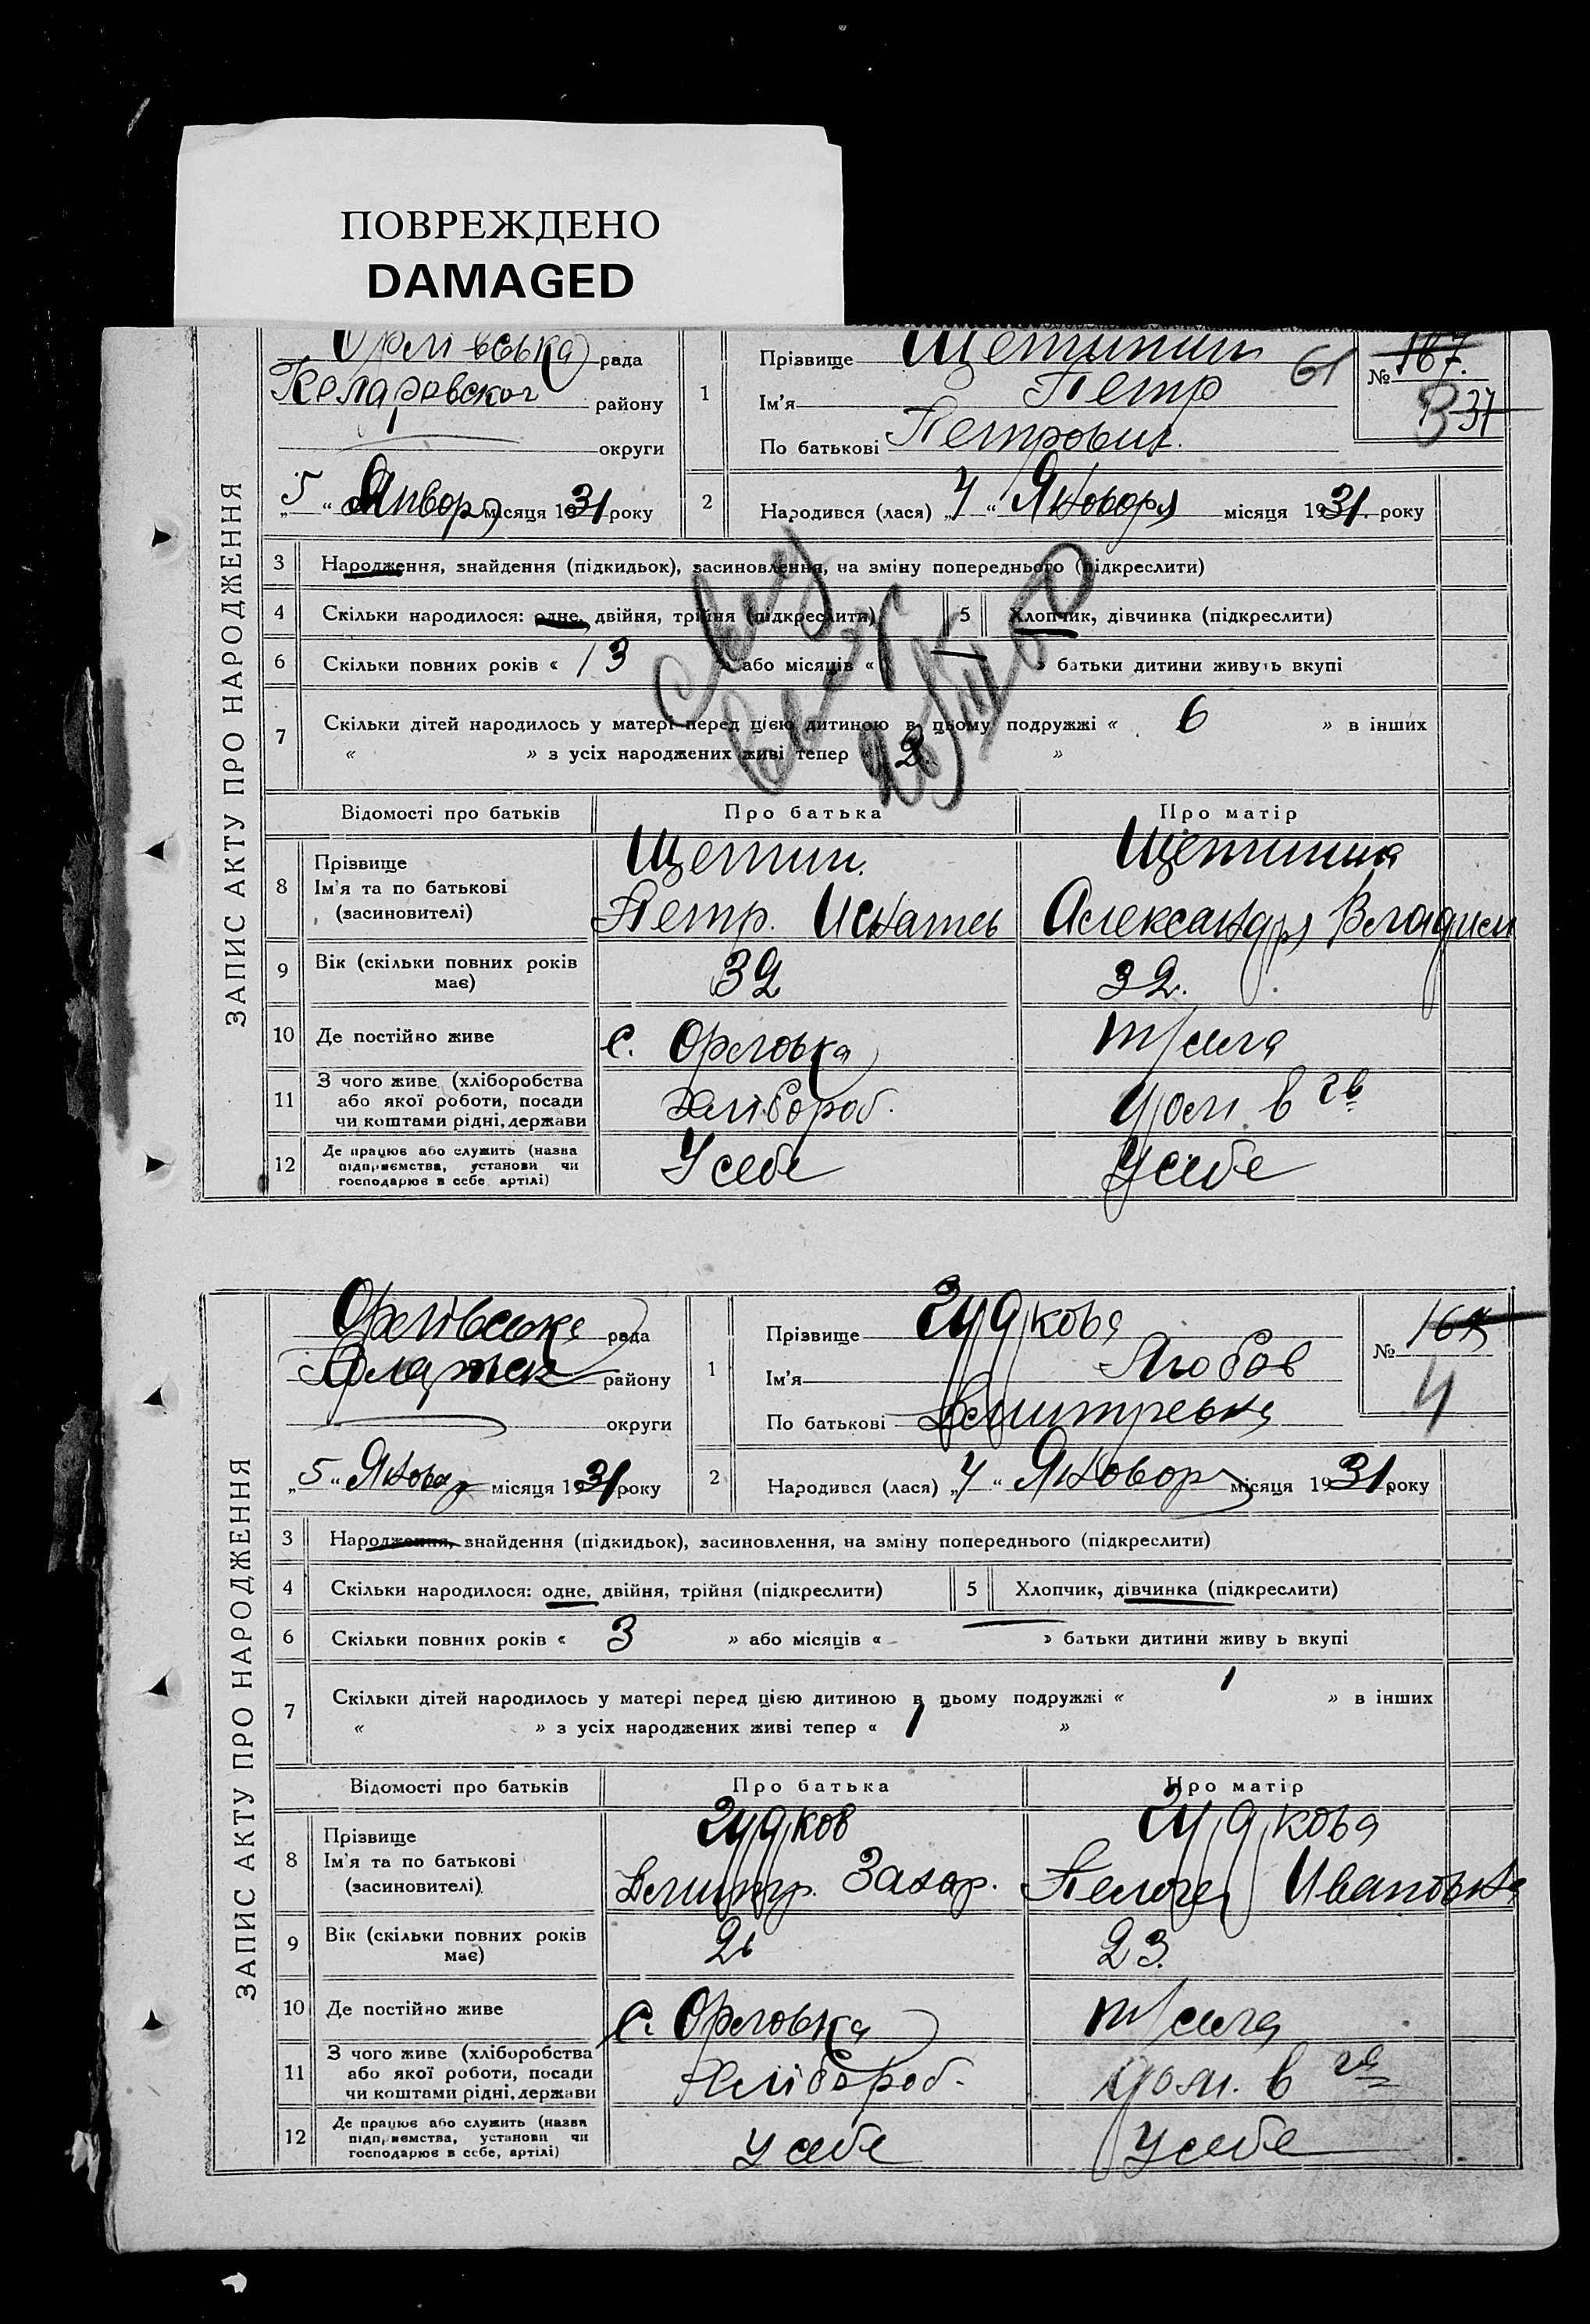 ПОВРЕЖДЕНО
DAMAGED
ЗАПИС АКТУ ПРО НАРОДЖЕННЯ
Орлівська рада
району
округи
5 " Январ місяця 1931 року
1
Прізвище Щетинин
61
Ім'я Петр
По батькові Петрович.
№ 167.
3 37
2
Народився (лася) „4 " Января місяця 1931. року
3 Народження, знайдення (підкидьок), засиновлення, на зміну попереднього (підкреслити)
4 Скільки народилося: одне, двійня, трійня (підкреслити) 5 Хлопчик, дівчинка (підкреслити)
6 Скільки повних років « 13 » або місяців « — » батьки дитини живуть вкупі
7 Скільки дітей народилось у матері перед цією дитиною в цьому подружжі « 6 » в інших
« » з усіх народжених живі тепер « 2. »
Відомості про батьків Про батька Про матір
8 Прізвище
Ім'я та по батькові
(засновителі)
Щетин.
Петр.
Щетинина
Александра Владим
9 Вік (скільки повних років
має)
32
32.
10 Де постійно живе с. Орловка т/села
11 З чого живе (хліборобства
або якої роботи, посади
чи коштами рідні, держави
Хлібороб. дом. в гв
12 Де працює або служить (назва
підприємства, установи чи
господарює в себе артілі)
У себе У себе
ЗАПИС АКТУ ПРО НАРОДЖЕННЯ
Орлівська рада
району
округи
„5 " Январ місяця 1931 року
1
Прізвище Гудкова
Ім'я Любов
По батькові Дмитревна
№
4
2
Народився (лася) „4 " Январ місяця 1931 року
3 Народження, знайдення (підкидьок), засиновлення, на зміну попереднього (підкреслити)
4 Скільки народилося: одне, двійня, трійня (підкреслити) 5 Хлопчик, дівчинка (підкреслити)
6 Скільки повних років « 3 » або місяців « — » батьки дитини живу ь вкупі
7 Скільки дітей народилось у матері перед цією дитиною в цьому подружжі « 1 » в інших
« » з усіх народжених живі тепер « 1 »
Відомості про батьків Про батька Про матір
8 Прізвище
Ім'я та по батькові
(засиновителі)
Гудков
Дмитр. Захар.
Гудкова
Пелагея Ивановна
9 Вік (скільки повних років
має)
26
23.
10 Де постійно живе с. Орловка т/села
11 З чого живе (хліборобства
або якої роботи, посади
чи коштами рідні, держави
Хлібороб. дом. в гв
12 Де працює або служить (назва
підприємства, установи чи
господарює в себе, артілі)
У себе У себе